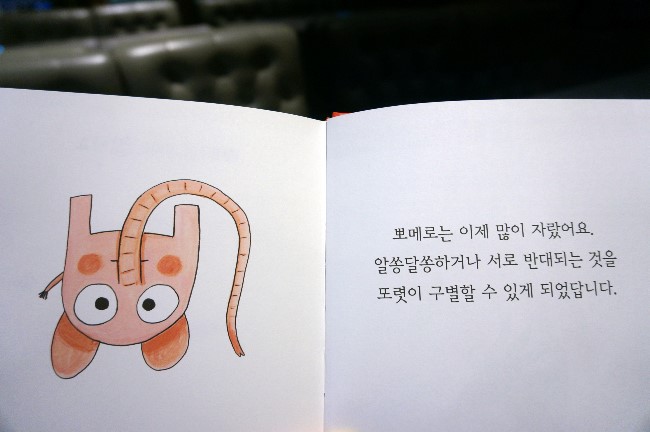 뽀메로는 이제 많이 자랐어요.
알쏭달쏭하거나 서로 반대되는 것을
또렷이 구별할 수 있게 되었답니다.